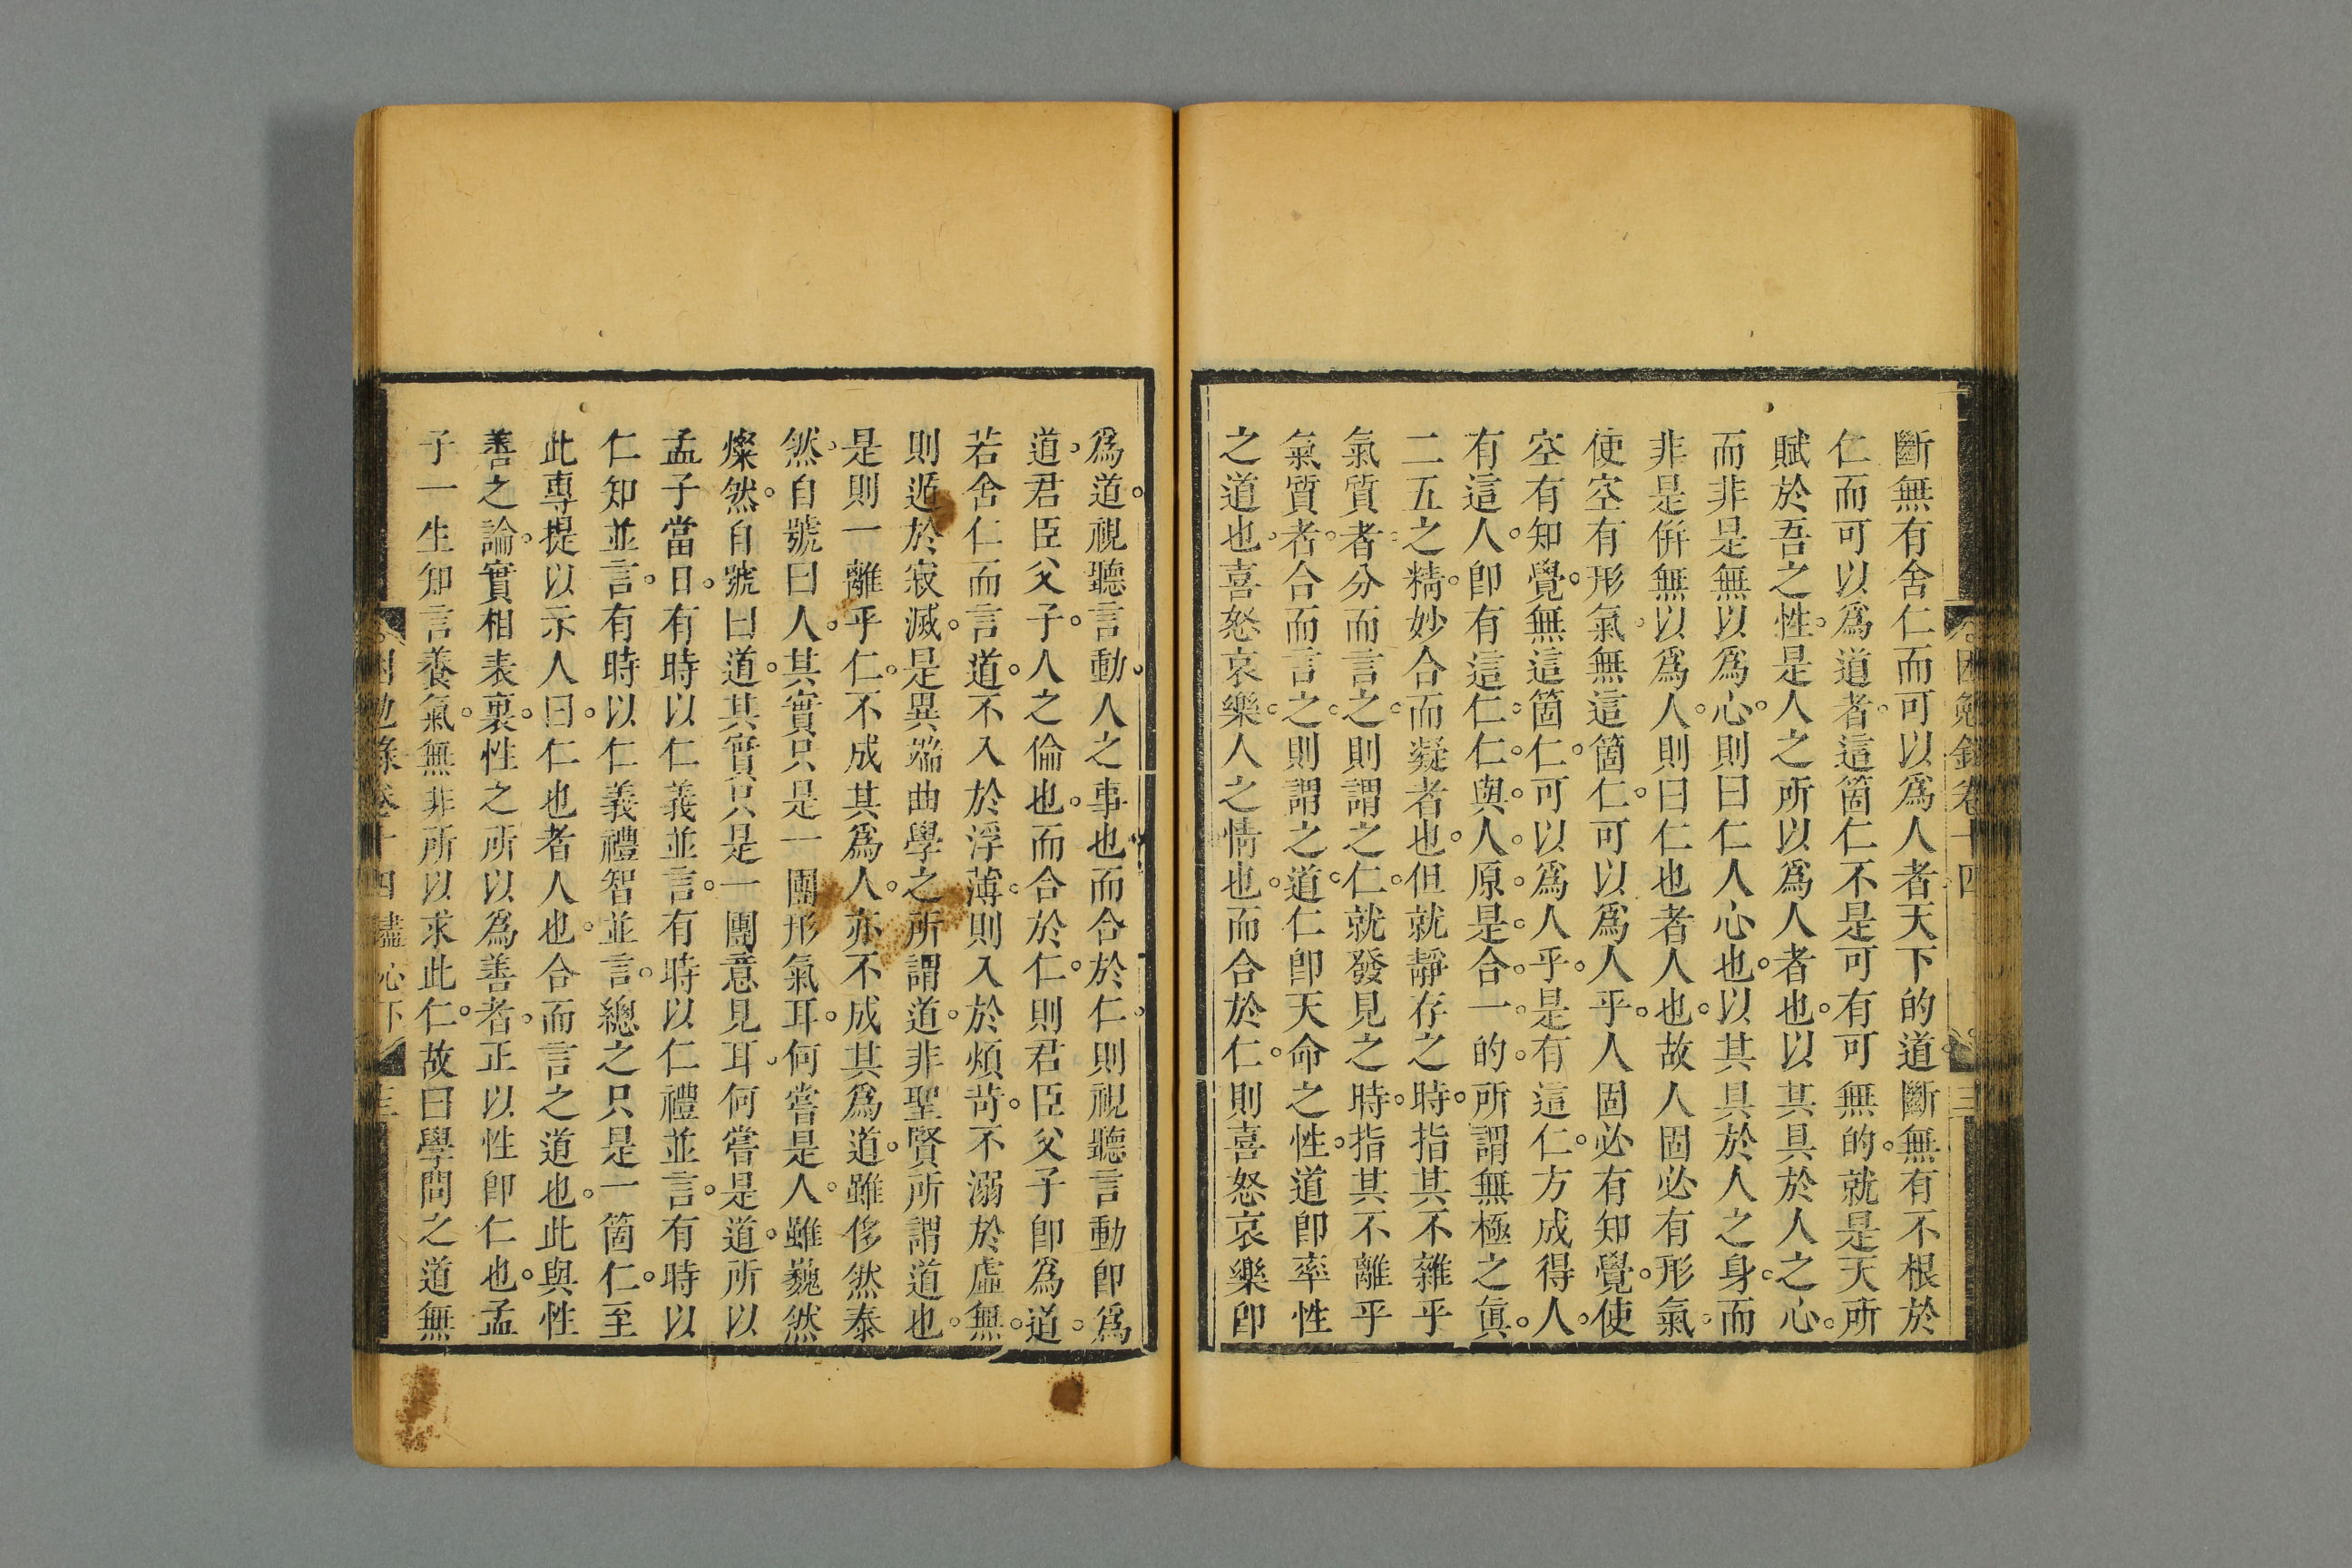 斷無有舍仁而可以爲人者天下的道斷無有不根於
仁而可以爲道者這箇仁不是可有可無的就是天所
賦於吾之性是人之所以爲人者也以其具於人之心
而非是無以爲心則曰仁人心也以其具於人之身而
非是倂無以爲人則曰仁也者人也故人固必有形氣
使空有形氣無這箇仁可以爲人乎人固必有知覺使
空有知覺無這箇仁可以爲人乎是有這仁方成得人
有這人卽有這仁仁與人原是合一的所謂無極之眞
二五之精妙合而凝者也但就靜存之時指其不雜乎
氣質者分而言之則謂之仁就發見之時指其不離乎
氣質者合而言之則謂之道仁卽天命之性道卽率性
之道也喜怒哀樂人之情也而合於仁則喜怒哀樂卽
爲道視聽言動人之事也而合於仁則視聽言動卽爲
道君臣父子人之倫也而合於仁則君臣父子卽爲道
若舍仁而言道不入於浮薄則入於煩苛不溺於虛無
則遁於寂滅是異端曲學之所謂道非聖賢所謂道也
是則一離乎仁不成其爲人亦不成其爲道雖侈然泰
然自號曰人其實只是一團形氣耳何嘗是人雖巍然
燦然自號曰道其實只是一團意見耳何嘗是道所以
孟子當日有時以仁義並言有時以仁禮並言有時以
仁知並言有時以仁義禮智並言總之只是一箇仁至
此專提以示人曰仁也者人也合而言之道也此與性
善之論實相表裏性之所以爲善者正以性卽仁也孟
子一生知言養氣無非所以求此仁故曰學問之道無
困勉錄卷十四盡心下